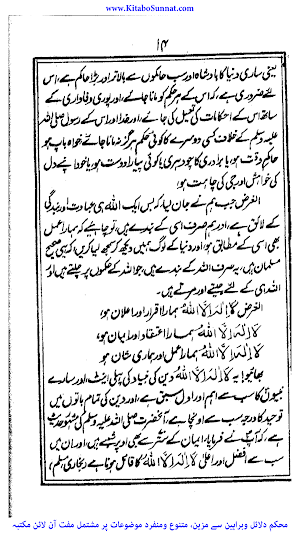 www.KitaboSunnat.com
۱۴
یعنی ساری دنیا کا بادشاہ اور سب حاکموں سے بالاتر اور بڑا حاکم ہے، اس
لئے ضروری ہے، کہ اس کے ہر حکم کو مانا جائے، اور پوری وفاداری کے
ساتھ اس کے احکامات کی تعمیل کی جائے، اور خدا اور اس کے رسول صلی اللہ
علیہ وسلم کے خلاف کسی دوسرے کا کوئی حکم ہرگز نہ مانا جائے خواہ باپ ہو
حاکم وقت ہو، یا برادری کا چودھری یا کوئی پیارا دوست ہو، یا خود اپنے دل
کی خواہش اور جی کی چاہت ہو،
الغرض جب ہم نے جان لیا کہ بس ایک اللہ ہی عبادت اور بندگی
کے لائق ہے، اور ہم صرف اسی کے بندے ہیں، تو چاہئے کہ ہمارا عمل
بھی اسی کے مطابق ہو، اور دنیا کے لوگ ہمیں دیکھ کر سمجھ لیا کریں کہ یہی صحیح
مسلمان ہیں، یہ صرف اللہ کے بندے ہیں، جو اللہ کے حکموں پر چلتے ہیں اور
اللہ ہی کے لئے جیتے اور مرتے ہیں۔
الغرض لَا اِلٰهَ اِلَّا اللهُ ہمارا اقرار اور اعلان ہو،
لَا اِلٰهَ اِلَّا اللهُ ہمارا اعتقاد اور ایمان ہو،
لَا اِلٰهَ اِلَّا اللهُ ہمارا عمل اور ہماری شان ہو
بھائیو! یہ لَا اِلٰهَ اِلَّا اللهُ دین کی بنیاد کی پہلی اینٹ، اور سارے
نبیوں کا سب سے اہم اور اول سبق ہے، اور دین کی تمام باتوں میں
توحید کا درجہ سب سے اونچا ہے، آنحضرت صلی اللہ علیہ وسلم کی مشہور حدیث
ہے، کہ آپؐ نے فرمایا، ایمان کے ستر سے بھی اوپر شعبے ہیں، اور ان میں
سب سے افضل اور اعلیٰ لَا اِلٰهَ اِلَّا اللهُ کا قائل ہونا ہے (بخاری مسلم)
محکم دلائل وبراہین سے مزین، متنوع ومنفرد موضوعات پر مشتمل مفت آن لائن مکتبہ